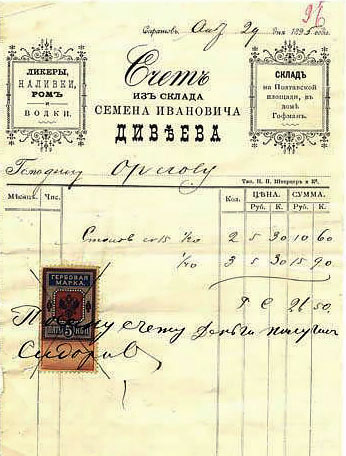 Саратовъ, Апр 29 дня 1895 года.
96
ЛИКЕРЫ,
НАЛИВКИ,
РОМЪ
И
ВОДКИ.
Счетъ
ИЗЪ СКЛАДА
СЕМЕНА ИВАНОВИЧА
ДИВѢЕВА
СКЛАДЪ
на Полтавской
площади, въ
домѣ
Гофманъ.
Господину Орлову
Тип. Н. П. Штерцеръ и Кº.
Мѣсяцъ. Чис. Кол. ЦѢНА. СУММА.
Руб. К. Руб. К.
1/20 2 5 30 10 60
1/20 3 5 30 15 90
26 50
ГЕРБОВАЯ
МАРКА.
ПЯТЬ 5 КОП.
По счету деньги получилъ
Сидоровъ